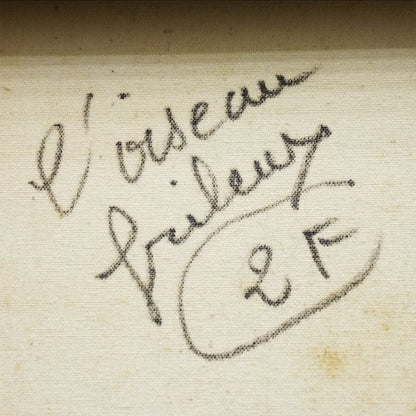 L'oiseau
frileux
2F